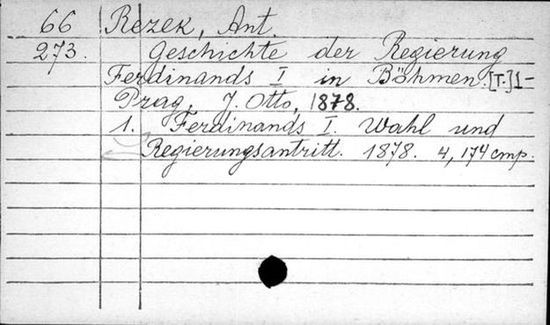 66 Rezek, Ant.
273. Geschichte der Regierung
Ferdinands I in Böhmen. [T.] 1-
Prag, J. Otto, 1878.
1. Ferdinands I. Wahl und
Regierungsantritt. 1878. 4, 174 cmp.